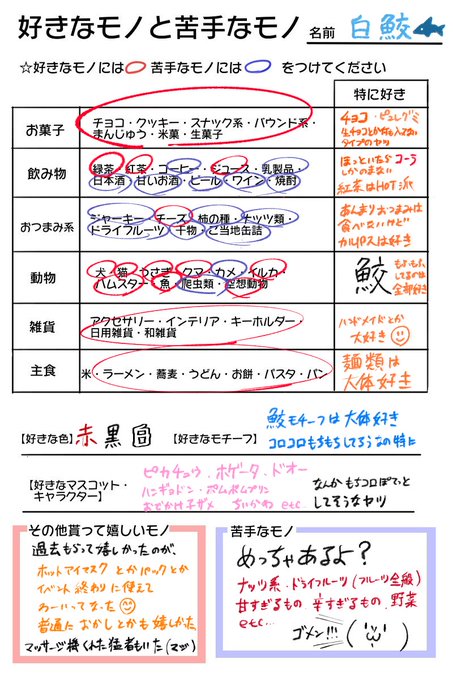 好きなモノと苦手なモノ 名前 白鮫
☆好きなモノには 苦手なモノには をつけてください
特に好き
お菓子
チョコ・クッキー・スナック系・パウンド系・
まんじゅう・米菓・生菓子
チョコ・ピュレグミ
生チョコとか何も入ってない
タイプのヤツ
飲み物
緑茶・紅茶・コーヒー・ジュース・乳製品・
日本酒・甘いお酒・ビール・ワイン・焼酎
ほっといたらコーラ
しかのまない
紅茶はHOT派
おつまみ系
ジャーキー・チーズ・柿の種・ナッツ類・
ドライフルーツ・干物・ご当地缶詰
あんまりおつまみは
食べないけど
カルパスは好き
動物
犬・猫・うさぎ・クマ・カメ・イルカ・
ハムスター・魚・爬虫類・空想動物
鮫
全部好き
雑貨
アクセサリー・インテリア・キーホルダー・
日用雑貨・和雑貨
ハンドメイドとか
大好き
主食
米・ラーメン・蕎麦・うどん・お餅・パスタ・パン
麺類は
大体好き
【好きな色】赤 黒
【好きなモチーフ】
鮫モチーフは大体好き
コロコロもちもちしてそうなの特に
【好きなマスコット・
キャラクター】
ピカチュウ、ホゲータ、ドオー
ハンギョドン・ポムポムプリン
おでかけ子ザメ ちいかわ etc…
なんかもちコロぽてっと
してそうなヤツ
その他貰って嬉しいモノ
過去もらって嬉しかったのが、
ホットアイマスクとかパックとか
イベント終わりに使えて
わーいってなった
普通におかしとかも嬉しかった
マッサージ機くれた猛者もいた(マジ)
苦手なモノ
めっちゃあるよ?
ナッツ系・ドライフルーツ(フルーツ全般)
甘すぎるもの 辛すぎるもの、野菜
etc…
ゴメン!!!